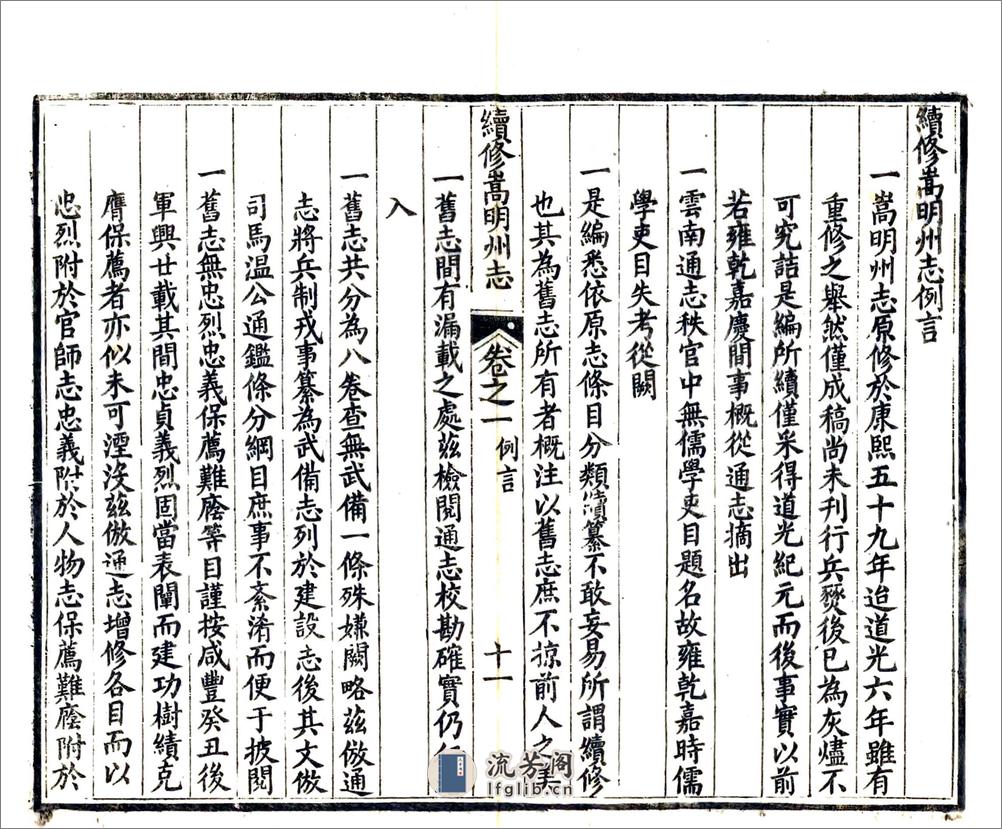 續修嵩明州志例言
一嵩明州志原修於康熙五十九年迨道光六年雖有
重修之舉然僅成稿尚未刊行兵燹後已為灰燼不
可究詰是編所續僅采得道光紀元而後事實以前
若雍乾嘉慶間事概從通志摘出
一雲南通志秩官中無儒學吏目題名故雍乾嘉時儒
學吏目失考從闕
一是編悉依原志條目分類續纂不敢妄易所謂續修
也其為舊志所有者概注以舊志庶不掠前人之美
續修嵩明州志 卷之一 例言 十一
一舊志間有漏載之處茲檢閱通志校勘確實仍
入
一舊志共分為八卷查無武備一條殊嫌闕略茲倣通
志將兵制戎事纂為武備志列於建設志後其文倣
司馬溫公通鑑條分綱目庶事不紊淆而便于披閱
一舊志無忠烈忠義保薦難廕等目謹按咸豐癸丑後
軍興廿載其間忠貞義烈固當表闡而建功樹績克
膺保薦者亦似未可湮沒茲倣通志增修各目而以
忠烈附於官師志忠義附於人物志保薦難廕附於
流芳阁
lfglib.com